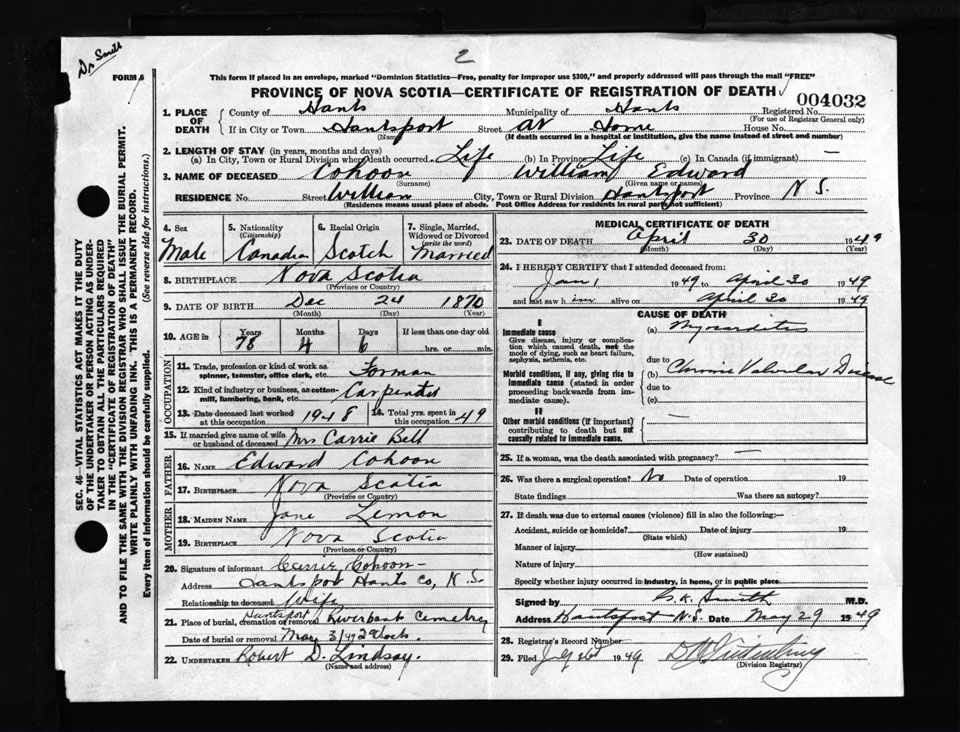 Dr Smith
2
FORM 6
This form if placed in an envelope, marked "Dominion Statistics—Free, penalty for improper use $300," and properly addressed will pass through the mail "FREE"
PROVINCE OF NOVA SCOTIA—CERTIFICATE OF REGISTRATION OF DEATH
004032
SEC. 46—VITAL STATISTICS ACT MAKES IT THE DUTY
OF THE UNDERTAKER OR PERSON ACTING AS UNDER-
TAKER TO OBTAIN ALL THE PARTICULARS REQUIRED
IN THE "CERTIFICATE OF REGISTRATION OF DEATH"
AND TO FILE THE SAME WITH THE DIVISION REGISTRAR WHO SHALL ISSUE THE BURIAL PERMIT.
WRITE PLAINLY WITH UNFADING INK. THIS IS A PERMANENT RECORD.
Every item of Information should be carefully supplied. (See reverse side for instructions.)
1. PLACE OF DEATH
County of Hants Municipality of Hants Registered No.
(For use of Registrar General only)
If in City or Town Hantsport Street At Home House No.
(Name) (If death occurred in a hospital or institution, give the name instead of street and number)
2. LENGTH OF STAY (in years, months and days)
(a) In City, Town or Rural Division where death occurred. Life (b) In Province Life (c) In Canada (if immigrant) —
3. NAME OF DECEASED Cohoon William Edward
(Surname) (Given name or names)
RESIDENCE No. Street William City, Town or Rural Division Hantsport Province N S.
(Residence means usual place of abode. Post Office Address for residents in rural parts not sufficient)
4. Sex Male
5. Nationality (Citizenship) Canadian
6. Racial Origin Scotch
7. Single, Married, Widowed or Divorced (write the word) Married
8. BIRTHPLACE Nova Scotia
(Province or Country)
9. DATE OF BIRTH Dec 24 1870
(Month) (Day) (Year)
10. AGE in Years 78 Months 4 Days 6 If less than one day old hrs. or min.
OCCUPATION
11. Trade, profession or kind of work as spinner, teamster, office clerk, etc. Forman
12. Kind of industry or business, as cotton-mill, lumbering, bank, etc. Carpenter
13. Date deceased last worked at this occupation 1948 14. Total yrs. spent in this occupation 49
15. If married give name of wife or husband of deceased Mrs Carrie Bell
FATHER
16. NAME Edward Cohoon
17. BIRTHPLACE Nova Scotia
(Province or Country)
MOTHER
18. MAIDEN NAME Jane Lemon
19. BIRTHPLACE Nova Scotia
(Province or Country)
20. Signature of informant Carrie Cohoon
Address Hantsport Hants Co, N.S.
Relationship to deceased Wife
21. Place of burial, cremation or removal Hantsport Riverbank Cemetery
Date of burial or removal May 3/49 2 o'clock.
22. UNDERTAKER Robert D. Lindsay.
(Name and address)
MEDICAL CERTIFICATE OF DEATH
23. DATE OF DEATH April 30 1949
(Month) (Day) (Year)
24. I HEREBY CERTIFY that I attended deceased from:
Jan 1 1949 to April 30 1949
and last saw him alive on April 30 1949
CAUSE OF DEATH
I
Immediate cause
Give disease, injury or complication which caused death, not the mode of dying, such as heart failure, asphyxia, asthenia, etc.
(a) Myocarditis
due to
Morbid conditions, if any, giving rise to immediate cause (stated in order proceeding backwards from immediate cause).
(b) Chronic Valvular Disease
due to
(c)
II
Other morbid conditions (if important) contributing to death but not causally related to immediate cause.
25. If a woman, was the death associated with pregnancy? —
26. Was there a surgical operation? No Date of operation 19
State findings Was there an autopsy?
27. If death was due to external causes (violence) fill in also the following:—
Accident, suicide or homicide? Date of injury 19
(State which)
Manner of injury
(How sustained)
Nature of injury
Specify whether injury occurred in industry, in home, or in public place
Signed by Smith M.D.
Address Hantsport N.S. Date May 29 1949
28. Registrar's Record Number
29. Filed 1949
(Division Registrar)